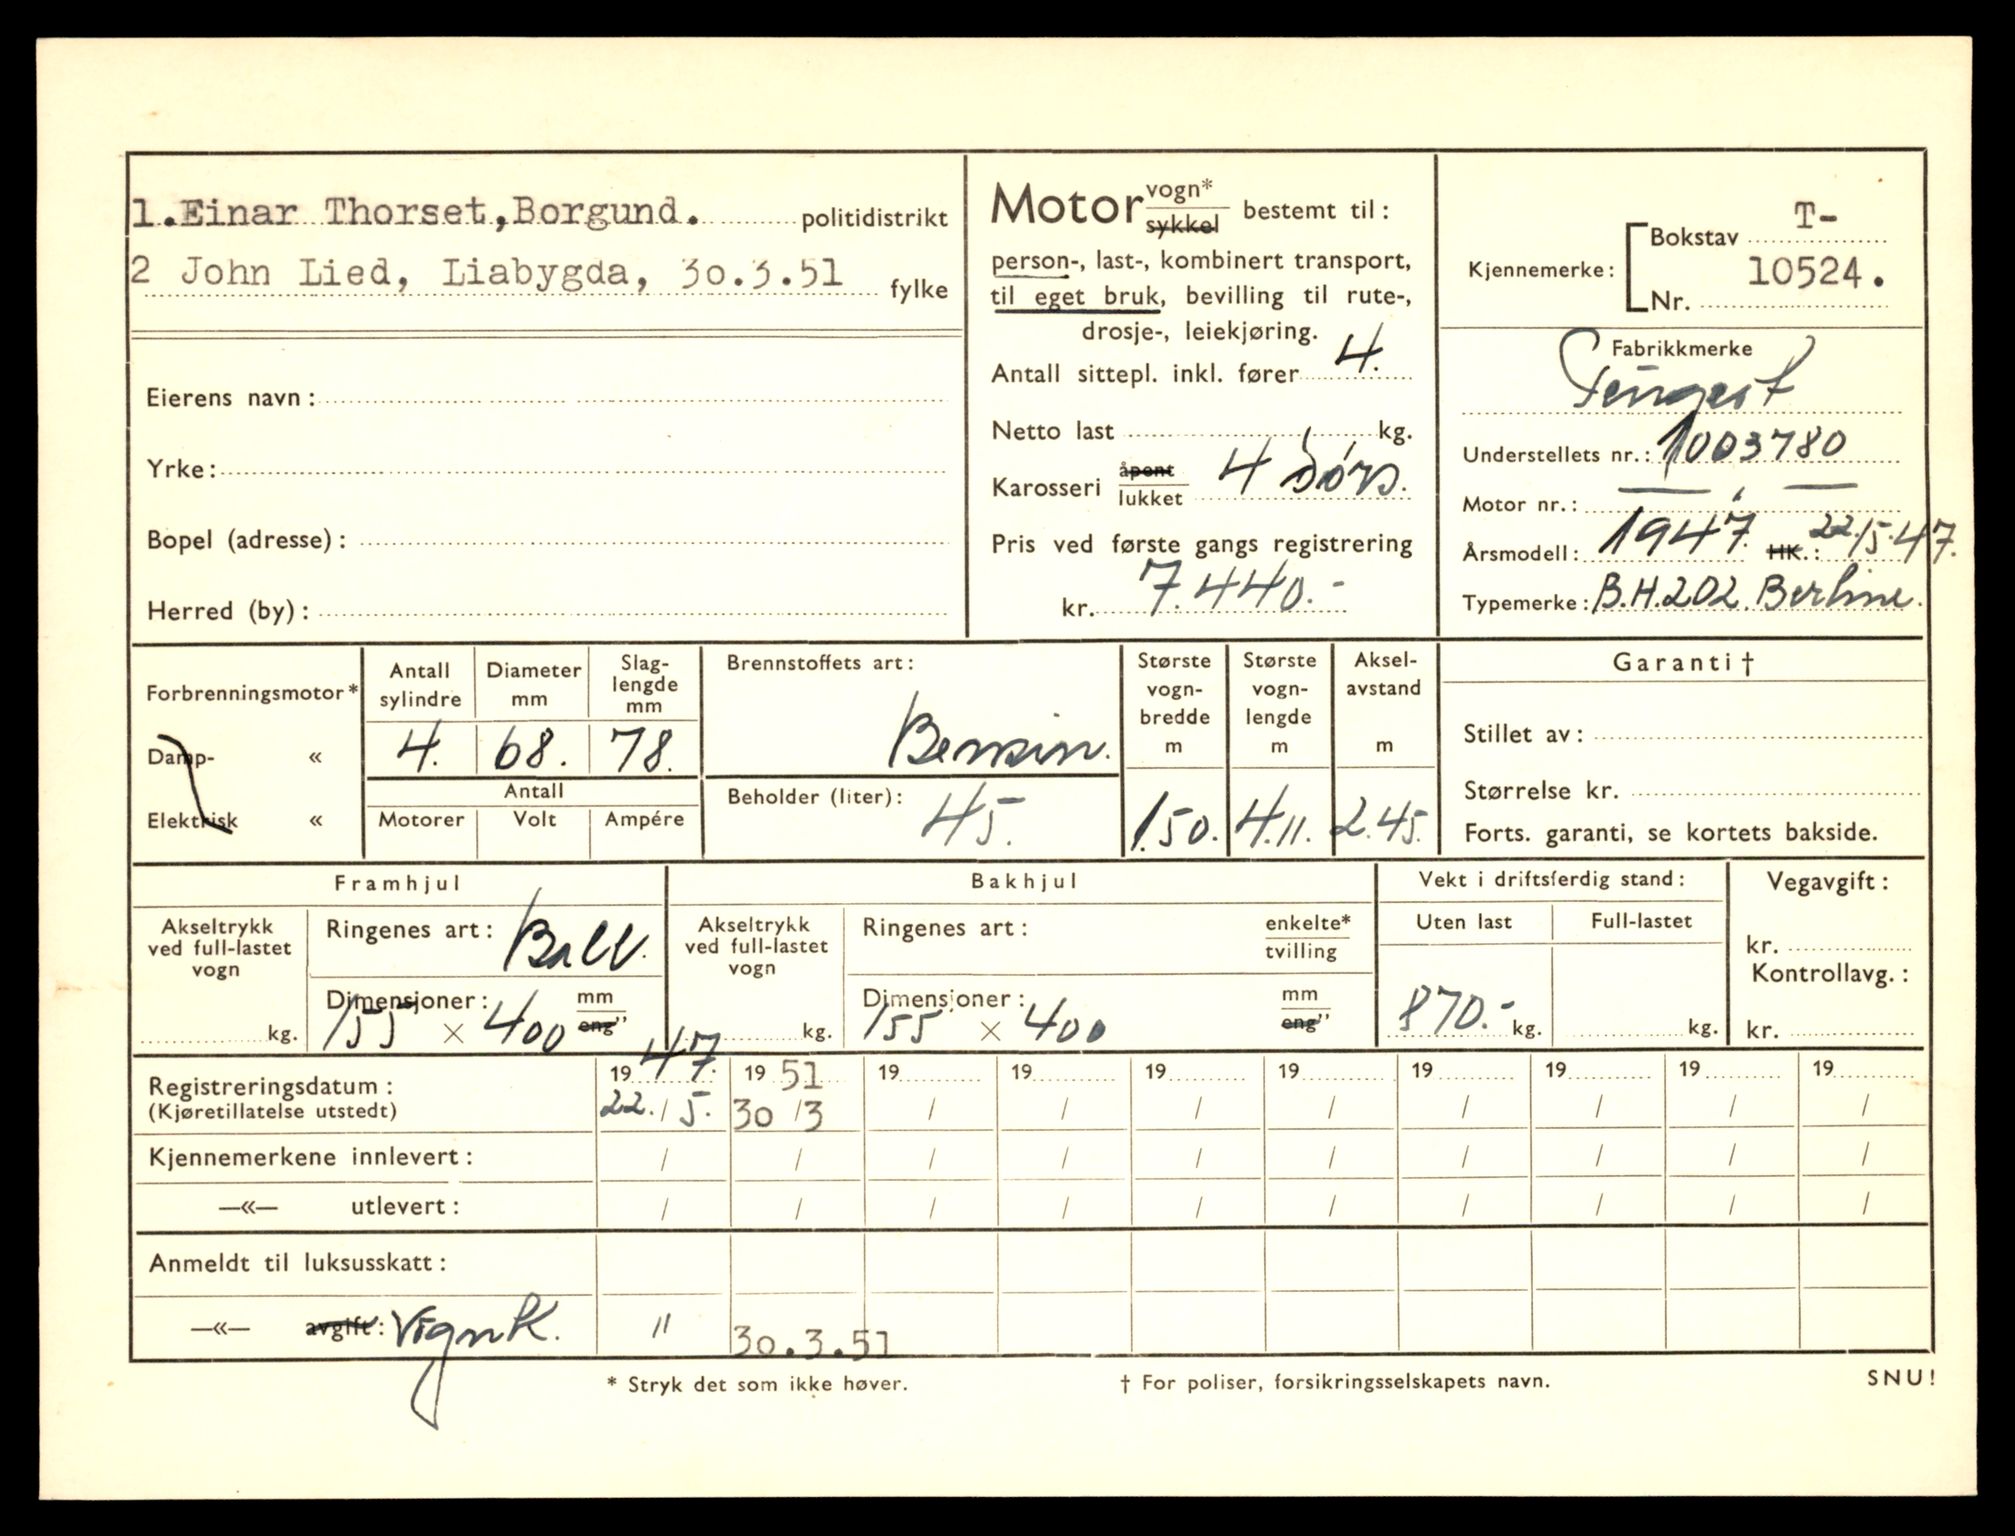 1.Einar Thorset,Borgund. politidistrikt
2 John Lied, Liabygda, 30.3.51 fylke
Eierens navn:
Yrke:
Bopel (adresse):
Herred (by):
Motor vogn*
sykkel bestemt til:
person-, last-, kombinert transport,
til eget bruk, bevilling til rute-,
drosje-, leiekjøring.
Antall sittepl. inkl. fører 4.
Netto last kg.
Karosseri åpent
lukket 4 dørs.
Pris ved første gangs registrering
kr. 7.440.-
Kjennemerke: Bokstav T-
Nr. 10524.
Fabrikkmerke
Understellets nr.: 1003780
Motor nr.: — " —
Årsmodell: 1947. HK.: 22./5.47.
Typemerke: B.H.202. Berline.
Forbrenningsmotor*
Damp- «
Elektrisk «
Antall sylindre
4.
Diameter mm
68.
Slag-lengde mm
78.
Antall
Motorer Volt Ampére
Brennstoffets art:
Bensin.
Beholder (liter): 45.
Største vogn-bredde m
1.50.
Største vogn-lengde m
4.11.
Aksel-avstand m
2.45.
Garanti†
Stillet av:
Størrelse kr.
Forts. garanti, se kortets bakside.
Framhjul
Akseltrykk ved full-lastet vogn
kg.
Ringenes art: Ball.
Dimensjoner: mm
155 × 400 eng"
Bakhjul
Akseltrykk ved full-lastet vogn
kg.
Ringenes art: enkelte*
tvilling
Dimensjoner: mm
155 × 400 eng"
Vekt i driftsferdig stand:
Uten last Full-lastet
870.- kg. kg.
Vegavgift:
kr.
Kontrollavg.:
kr.
Registreringsdatum: 1947. 19 51 19 19 19 19 19 19 19 19
(Kjøretillatelse utstedt) 22./5. 30/3 / / / / / / / /
Kjennemerkene innlevert: / / / / / / / / / /
—«— utlevert: / / / / / / / / / /
Anmeldt til luksusskatt:
—«— avgift: Vognk. " 30.3.51
* Stryk det som ikke høver. † For poliser, forsikringsselskapets navn. SNU!